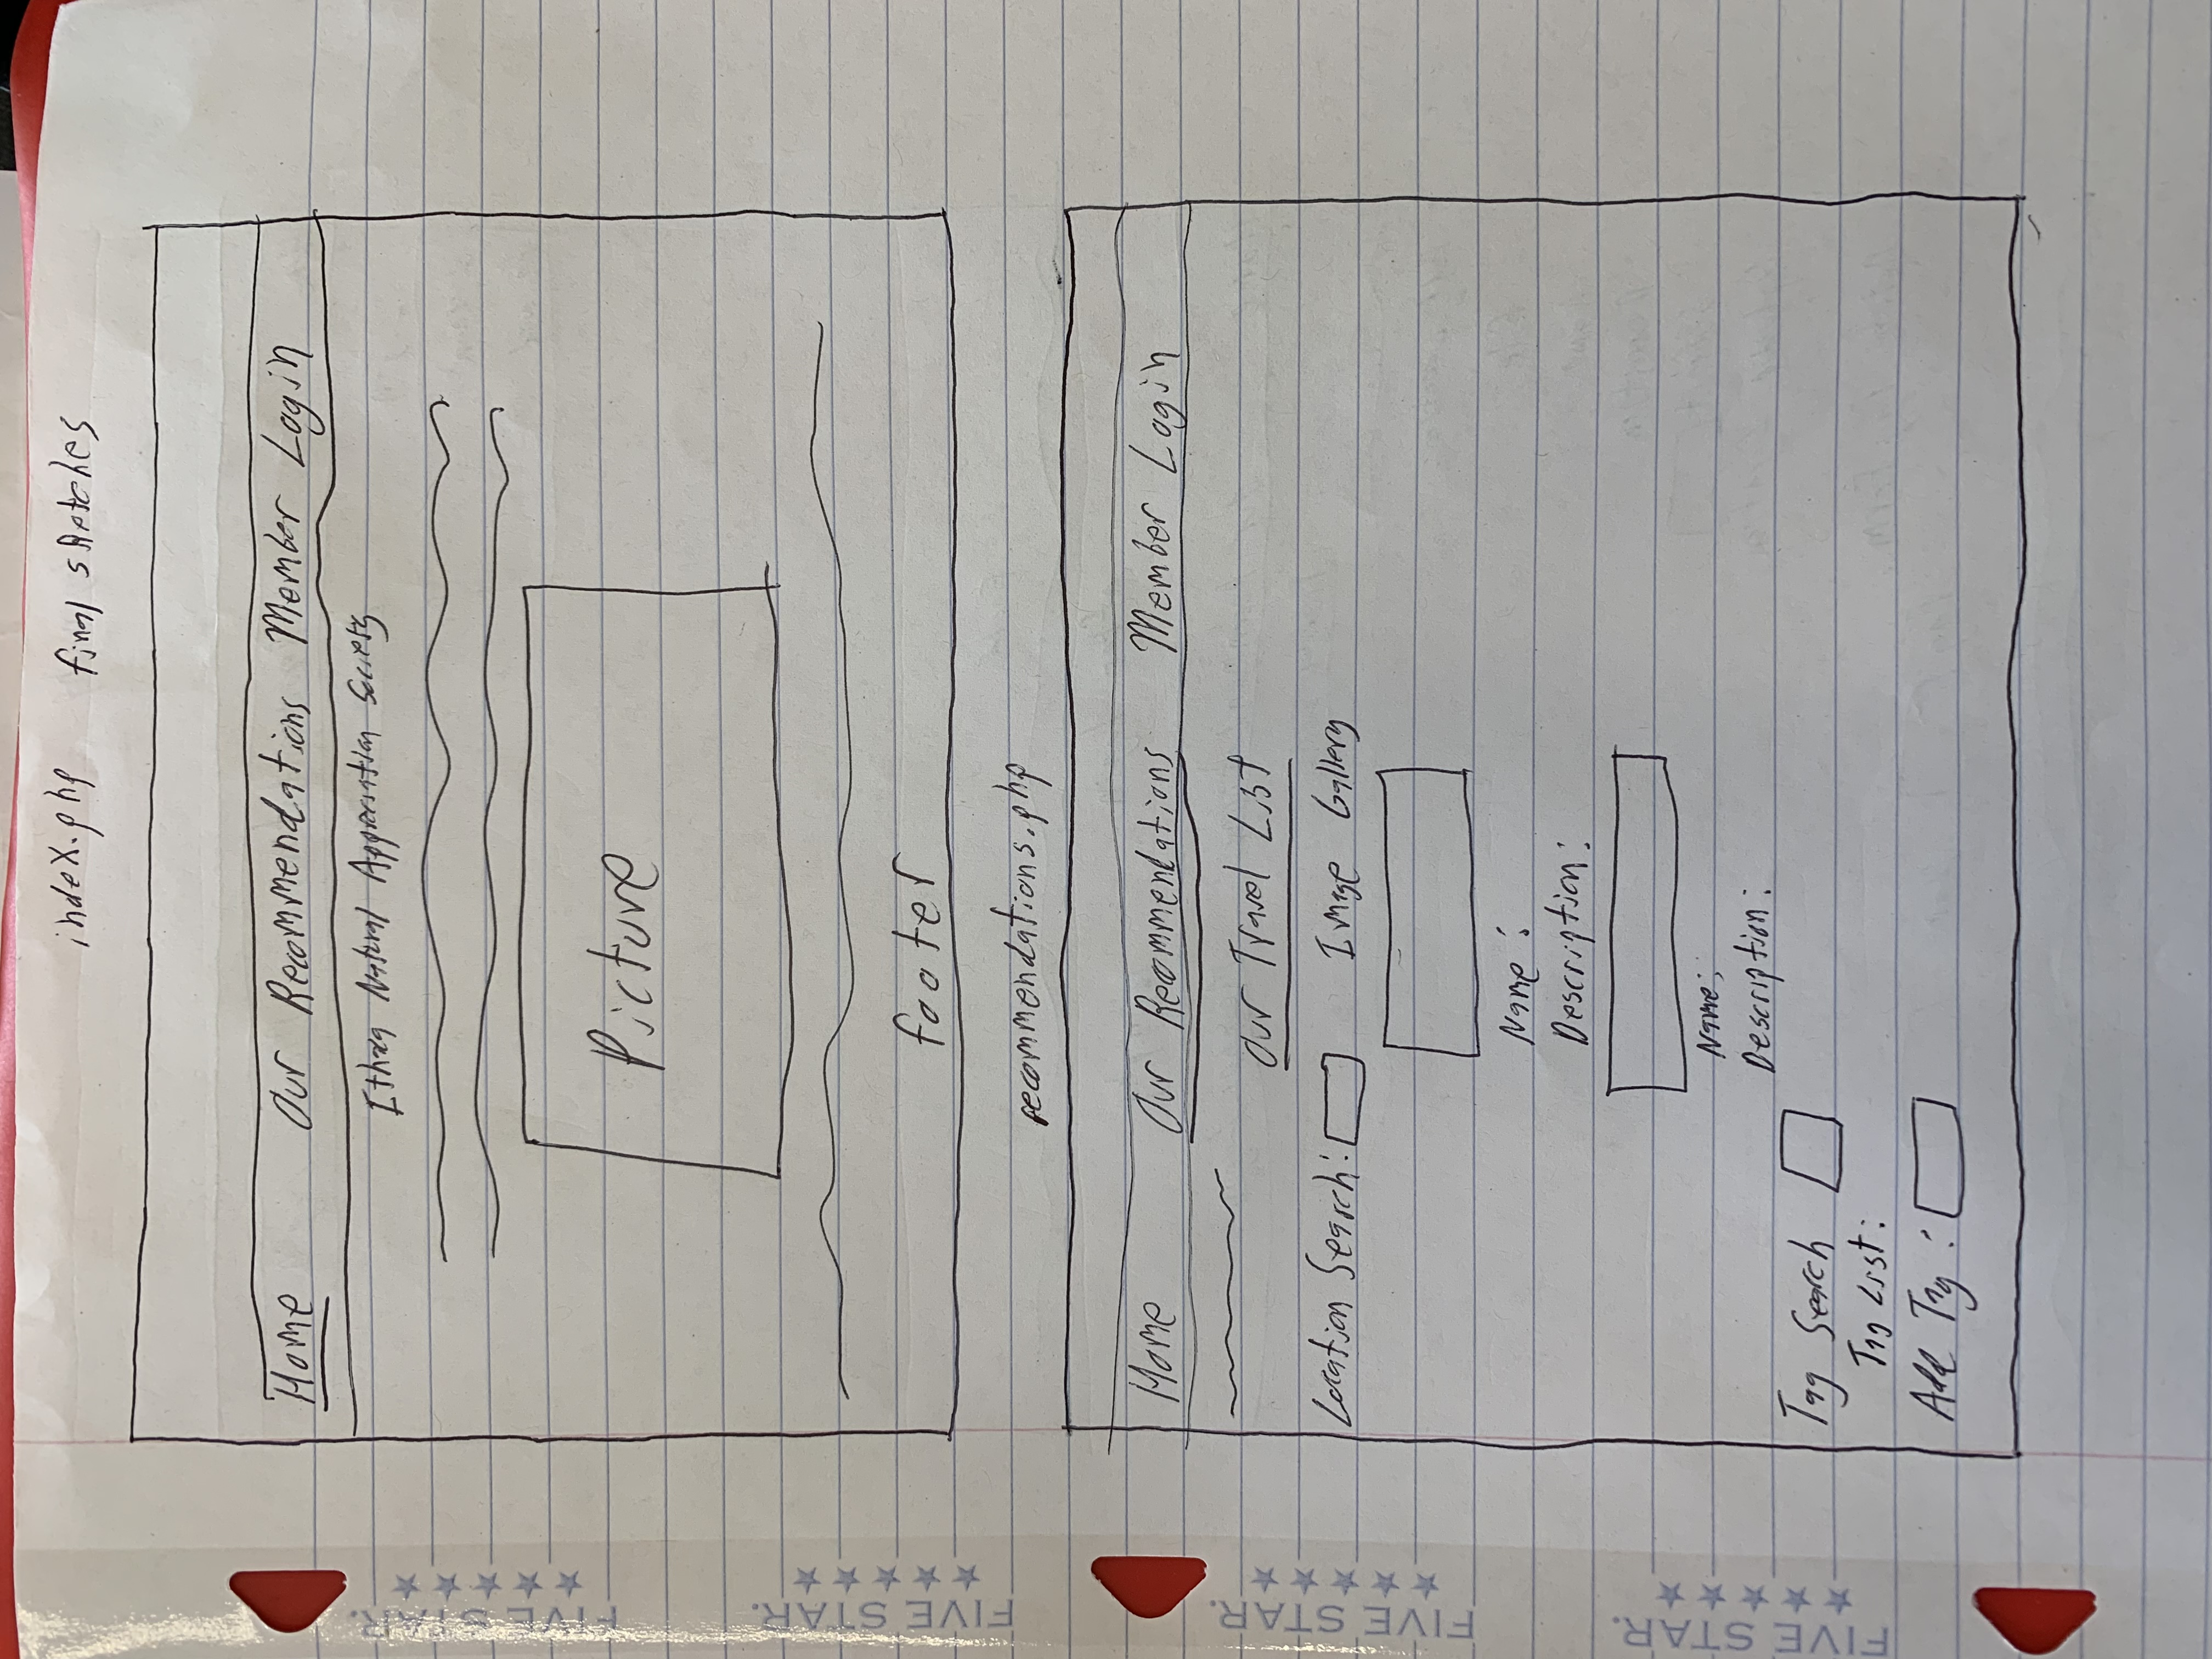 index.php final sketches
Home Our Recommendations Member Login
Ithaca Natural Appreciation Society
Picture
footer
recommendations.php
Home Our Recommendations Member Login
Our Travel List
Location Search: Image Gallery
Name :
Description:
Name:
Description:
Tag Search
Tag List:
Add Tag :
FIVE STAR.
FIVE STAR.
FIVE STAR.
FIVE STAR.